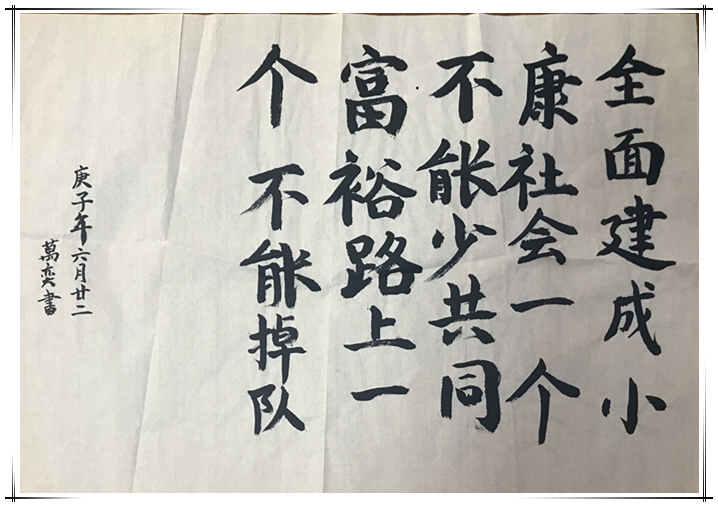 全面建成小
康社会一个
不能少共同
富裕路上一
个不能掉队
庚子年六月廿二
萬奕書